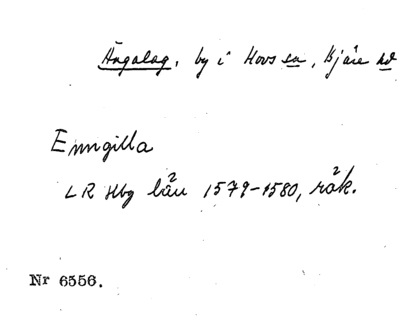 Ängalag, by i Hovs sn, Bjäre hd
Enngilla
LR Hbg län² 1579-1580, räk².
Nr 6556.